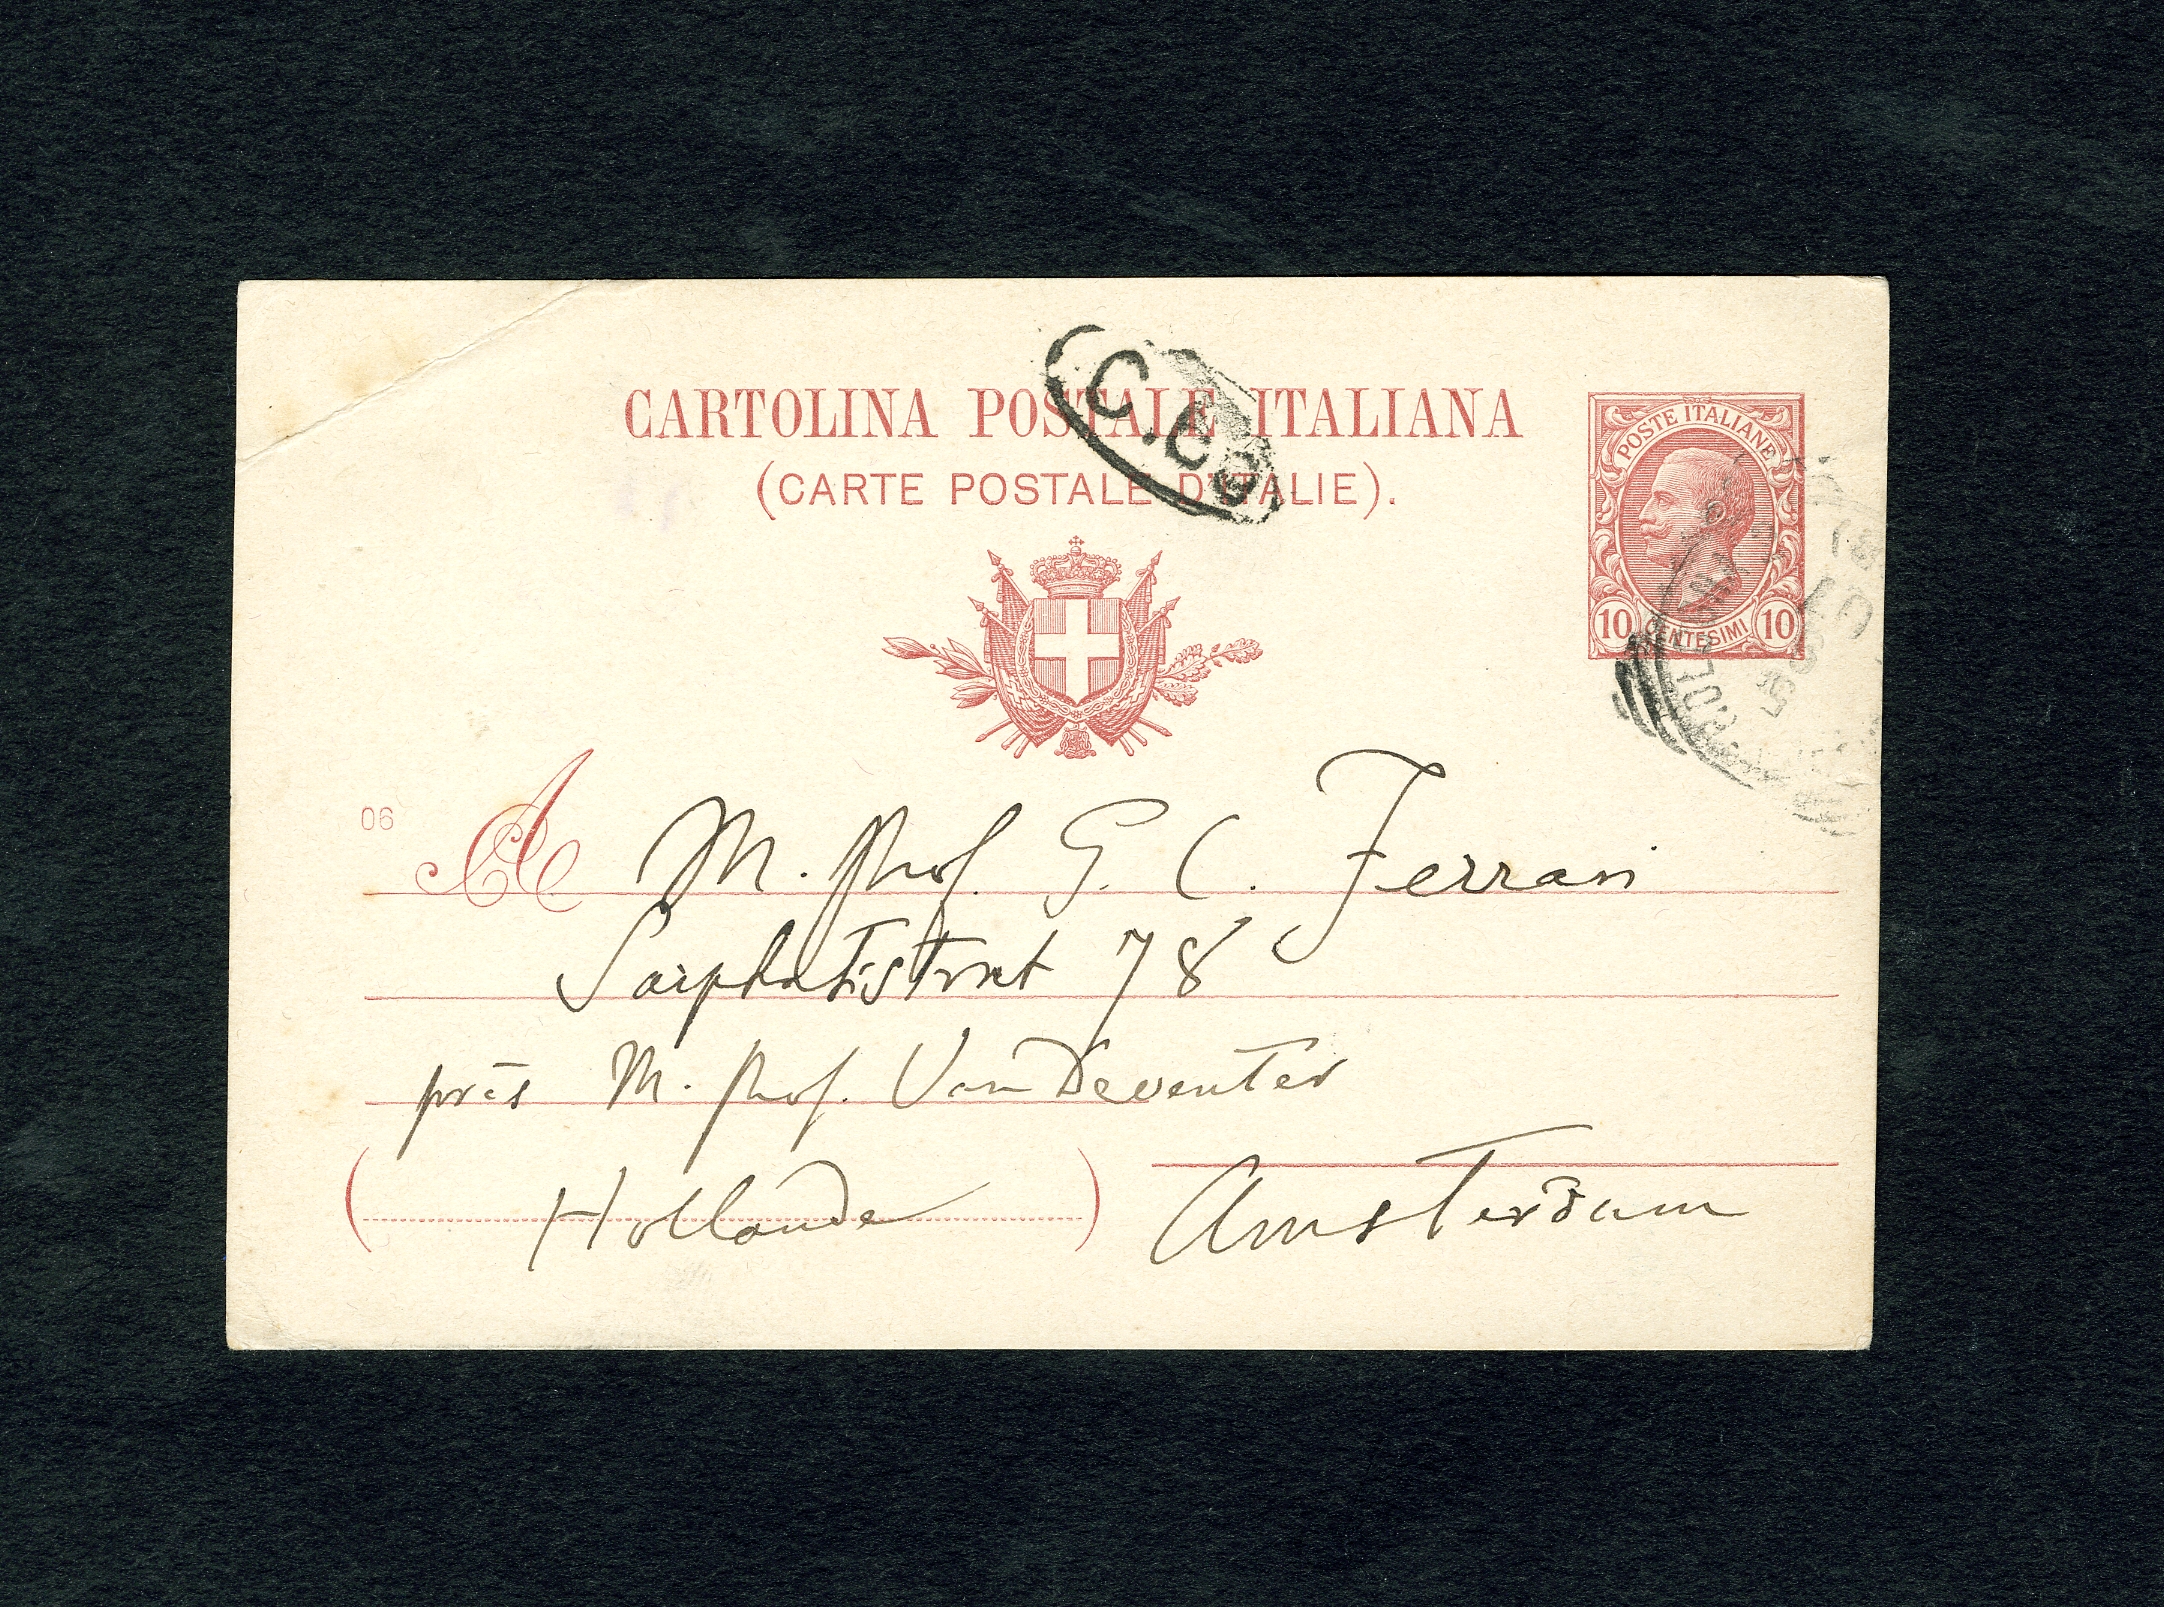 C.C
CARTOLINA POSTALE ITALIANA
(CARTE POSTALE D'ITALIE).
POSTE ITALIANE
10 CENTESIMI 10
06
A M. Prof. G. C. Ferrari
Sarphatistraat 78
près M. Prof. Van Deventer
(Hollande) Amsterdam